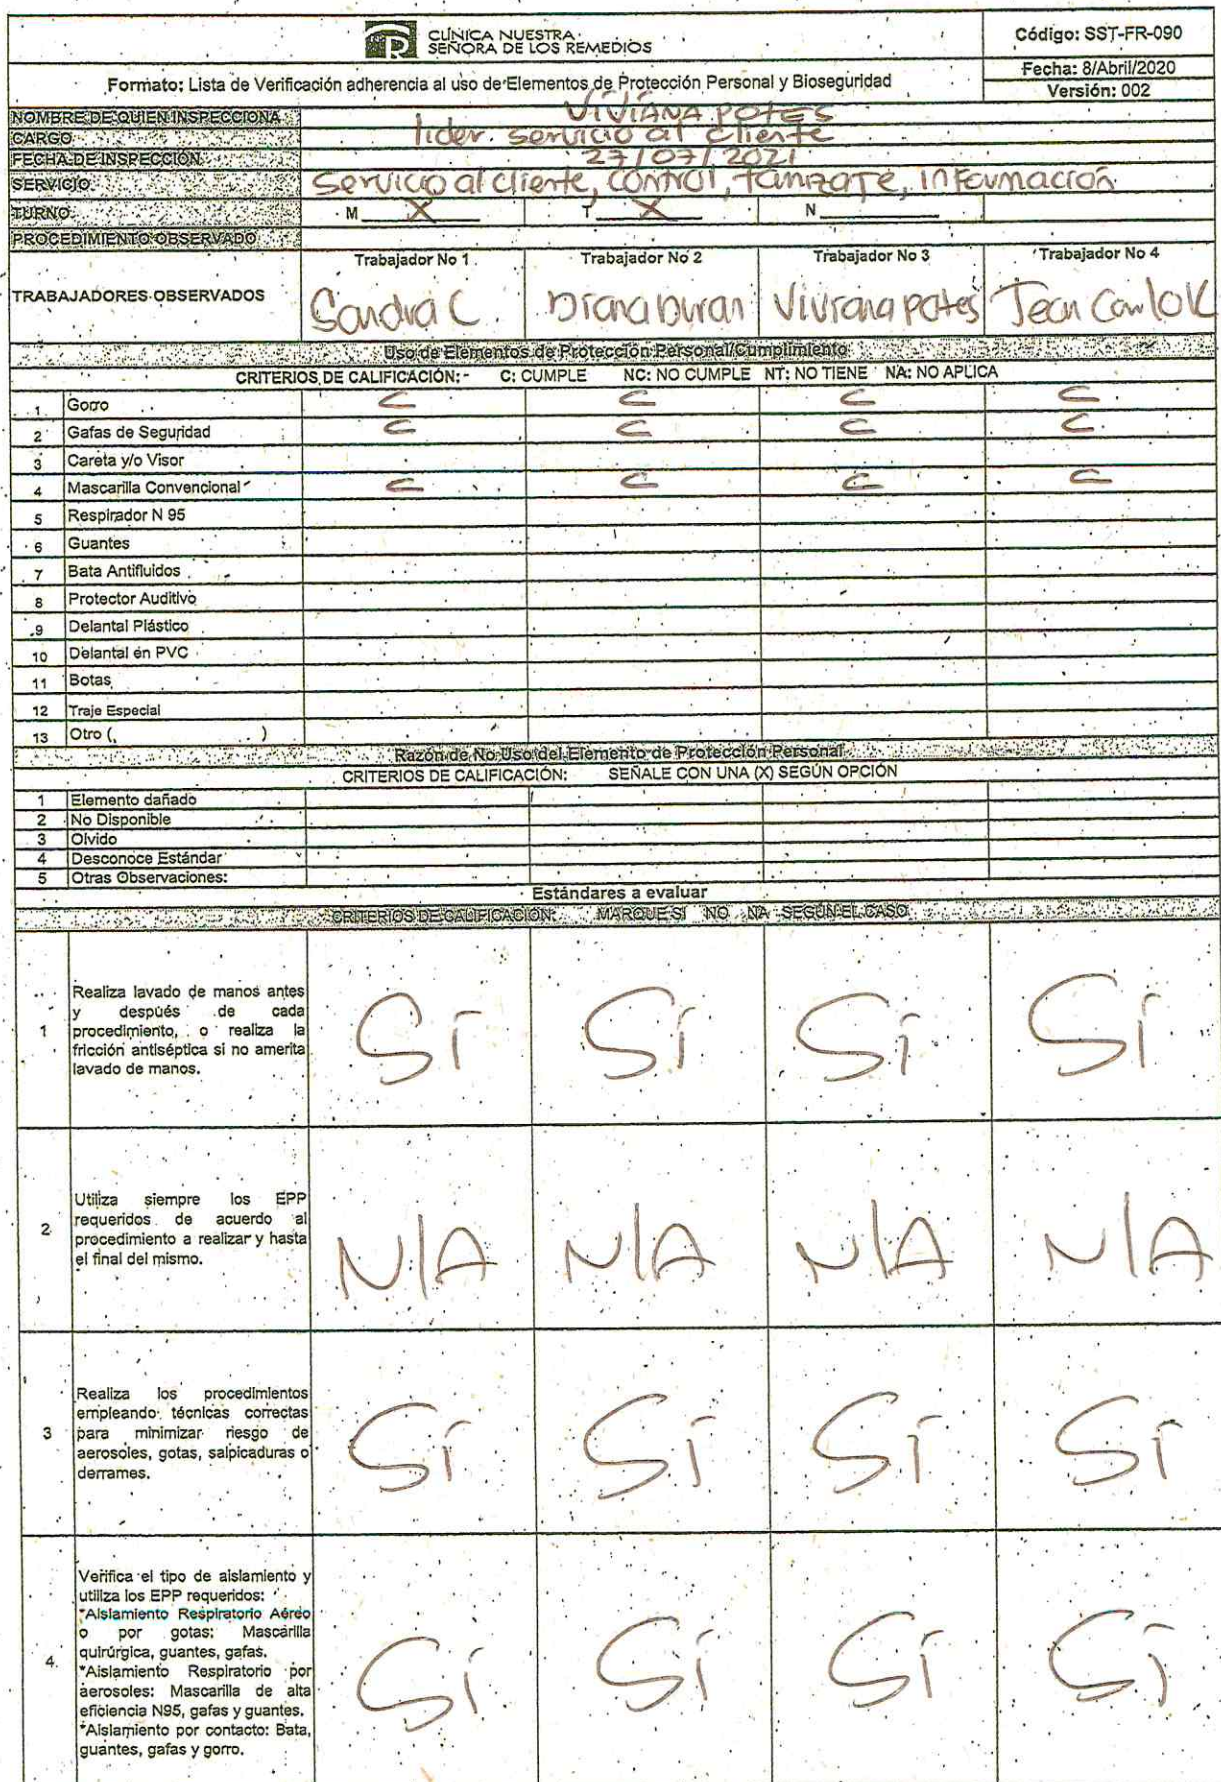 CLÍNICA NUESTRA
SEÑORA DE LOS REMEDIOS
Código: SST-FR-090
Formato: Lista de Verificación adherencia al uso de Elementos de Protección Personal y Bioseguridad
Fecha: 8/Abril/2020
Versión: 002
NOMBRE DE QUIEN INSPECCIONA VIVIANA POTES
CARGO lider servicio al cliente
FECHA DE INSPECCIÓN 27/07/2021
SERVICIO Servicio al cliente, control, tamizaje, información
TURNO M X T X N
PROCEDIMIENTO OBSERVADO
TRABAJADORES OBSERVADOS
Trabajador No 1 Trabajador No 2 Trabajador No 3 Trabajador No 4
Sandra C. Diana Duran Viviana potes Jean
Uso de Elementos de Protección Personal/Cumplimiento
CRITERIOS DE CALIFICACIÓN: - C: CUMPLE NC: NO CUMPLE NT: NO TIENE NA: NO APLICA
1 Gorro C C C C
2 Gafas de Seguridad C C C C
3 Careta y/o Visor
4 Mascarilla Convencional C C C C
5 Respirador N 95
6 Guantes
7 Bata Antifluidos
8 Protector Auditivo
9 Delantal Plástico
10 Delantal en PVC
11 Botas
12 Traje Especial
13 Otro ( )
Razón de No Uso del Elemento de Protección Personal
CRITERIOS DE CALIFICACIÓN: SEÑALE CON UNA (X) SEGÚN OPCIÓN
1 Elemento dañado
2 No Disponible
3 Olvido
4 Desconoce Estándar
5 Otras Observaciones:
Estándares a evaluar
CRITERIOS DE CALIFICACIÓN: MARQUE SI NO NA SEGÚN EL CASO
1
Realiza lavado de manos antes
y después de cada
procedimiento, o realiza la
fricción antiséptica si no amerita
lavado de manos.
Sí Sí Sí Sí
2
Utiliza siempre los EPP
requeridos de acuerdo al
procedimiento a realizar y hasta
el final del mismo.
N/A N/A N/A N/A
3
Realiza los procedimientos
empleando técnicas correctas
para minimizar riesgo de
aerosoles, gotas, salpicaduras o
derrames.
Sí Sí Sí Sí
4.
Verifica el tipo de aislamiento y
utiliza los EPP requeridos:
*Aislamiento Respiratorio Aéreo
o por gotas: Mascarilla
quirúrgica, guantes, gafas.
*Aislamiento Respiratorio por
aerosoles: Mascarilla de alta
eficiencia N95, gafas y guantes.
*Aislamiento por contacto: Bata,
guantes, gafas y gorro.
Sí Sí Sí Sí